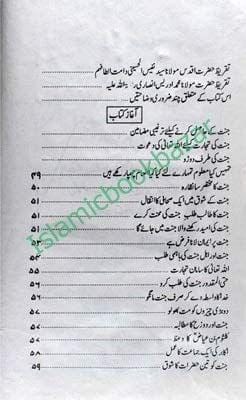 تقریظ حضرت اقدس مولانا سید نفیس الحسینی دامت الطافہم
تقریظ حضرت مولانا محمد ادریس انصاری رحمۃ اللہ علیہ
اس کتاب کے متعلق چند ضروری وضاحتیں
آغاز کتاب
جنت کے حاصل کرنے کیلئے ترغیبی مضامین
جنت کی تجارت کیلئے اللہ تعالیٰ کی دعوت
جنت کی طرف دوڑو
تمہیں کیا معلوم تمہارے لئے کیا کیا انعام چھپا رکھے ہیں ۴۹
جنت کا مختصر سا نظارہ ۵۰
جنت کے شوق میں ایک صحابی کا انتقال ۵۱
جنت کا طالب جنت کی محنت کرے ۵۱
جنت کی امید رکھنے والا جنت میں جائے گا ۵۱
جنت پر ایمان لانا فرض ہے ۵۳
جنت اور اہل جنت کی باہمی طلب ۵۴
اللہ تعالیٰ کا سامان تجارت ۵۵
حتی المقدور جنت کی طلب کرو ۵۶
خدا کا واسطہ دے کر صرف جنت مانگو ۵۶
دو بڑی چیزوں کو مت بھولو ۵۷
جنت اور دوزخ کا مطالبہ ۵۷
کلثوم بن عیاض کا وعظ ۵۷
اکابر کی ایک جماعت کا عمل ۵۸
جنت کو تین حضرات کا شوق ۵۹
Islamicbookbazar